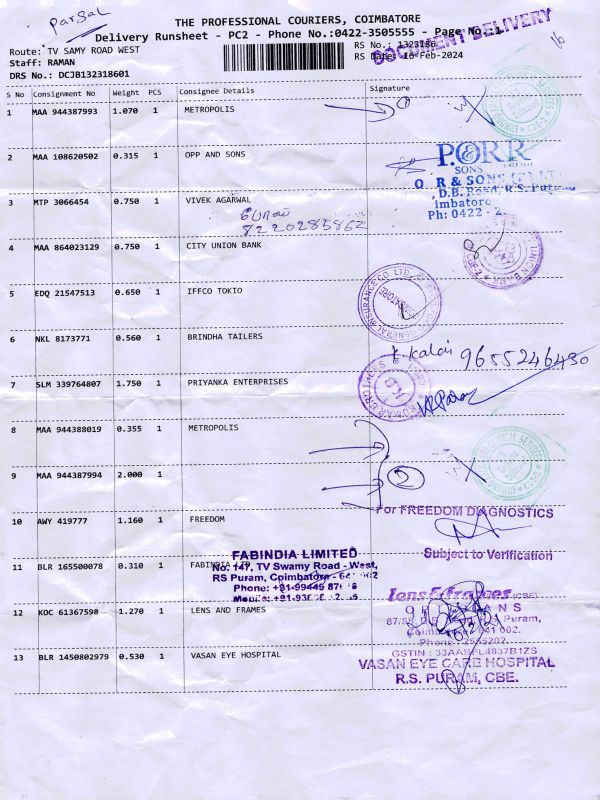 Parsal
THE PROFESSIONAL COURIERS, COIMBATORE
Delivery Runsheet - PC2 - Phone No.:0422-3505555 - Page No.:1
DOCUMENT DELIVERY
Route: TV SAMY ROAD WEST
RS No.: 1323186
Staff: RAMAN
RS Date: 16-Feb-2024
16
DRS No.: DCJB132318601
S No Consignment No Weight PCS Consignee Details Signature
1 MAA 944387993 1.070 1 METROPOLIS
2 MAA 108620502 0.315 1 OPP AND SONS
P.ORR
SONS
R & SONS (P) LT
D.B. Road, R.S. Pu
imbatore
Ph: 0422 - 2
3 MTP 3066454 0.750 1 VIVEK AGARWAL
8220285862
4 MAA 864023129 0.750 1 CITY UNION BANK
5 EDQ 21547513 0.650 1 IFFCO TOKIO
6 NKL 8173771 0.560 1 BRINDHA TAILERS
K. Kalai 9655246430
7 SLM 339764807 1.750 1 PRIYANKA ENTERPRISES
8 MAA 944388019 0.355 1 METROPOLIS
9 MAA 944387994 2.000 1
2
10 AWY 419777 1.160 1 FREEDOM
For FREEDOM DIAGNOSTICS
Subject to Verification
11 BLR 165500078 0.310 1 FABINDIA LTD
FABINDIA LIMITED
No. 147, TV Swamy Road - West,
RS Puram, Coimbatore - 641 002
Phone: +91-99449 87
Mobile: +91-93
12 KOC 61367598 1.270 1 LENS AND FRAMES
Lens & frames (CBE)
OPTICIANS
Puram,
Coimbatore 641 002.
GSTIN : 33AABFL4837B1ZS
13 BLR 1450802979 0.530 1 VASAN EYE HOSPITAL
VASAN EYE CARE HOSPITAL
R.S. PURAM, CBE.